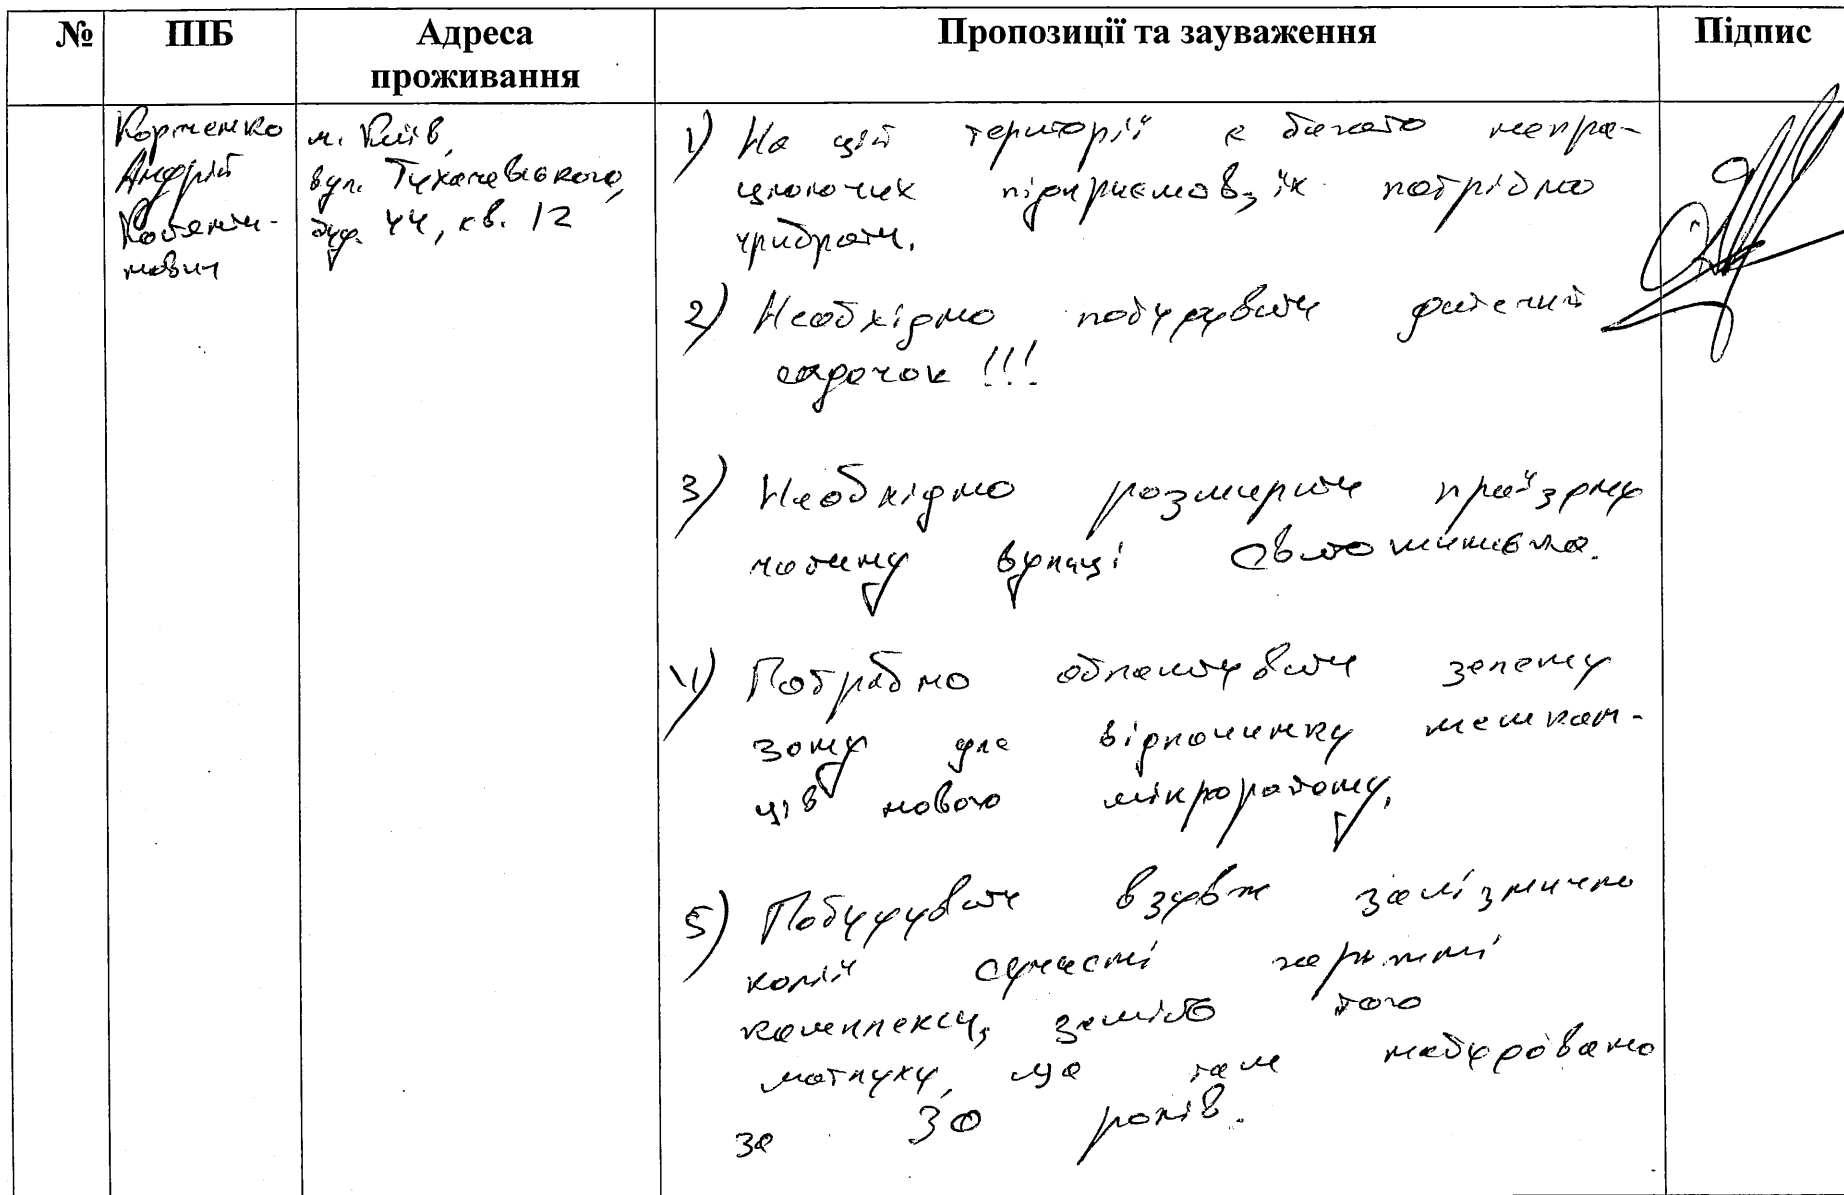 № ПІБ Адреса проживання Пропозиції та зауваження Підпис
Корженко
Андрій
Костянти-
нович
м. Київ,
вул. Тухачевського,
буд. 44, кв. 12
1) На цій території є багато непра-
цюючих підприємств, їх потрібно
прибрати.
2) Необхідно побудувати дитячий
садочок !!!
3) Необхідно розширити проїзну
частину вулиці
4) Потрібно облаштувати зелену
зону для відпочинку мешкан-
ців нового мікрорайону.
5) Побудувати вздовж залізничної
колії сучасні гаражні
комплекси, замість того
мотлуху, що там набудовано
за 30 років.